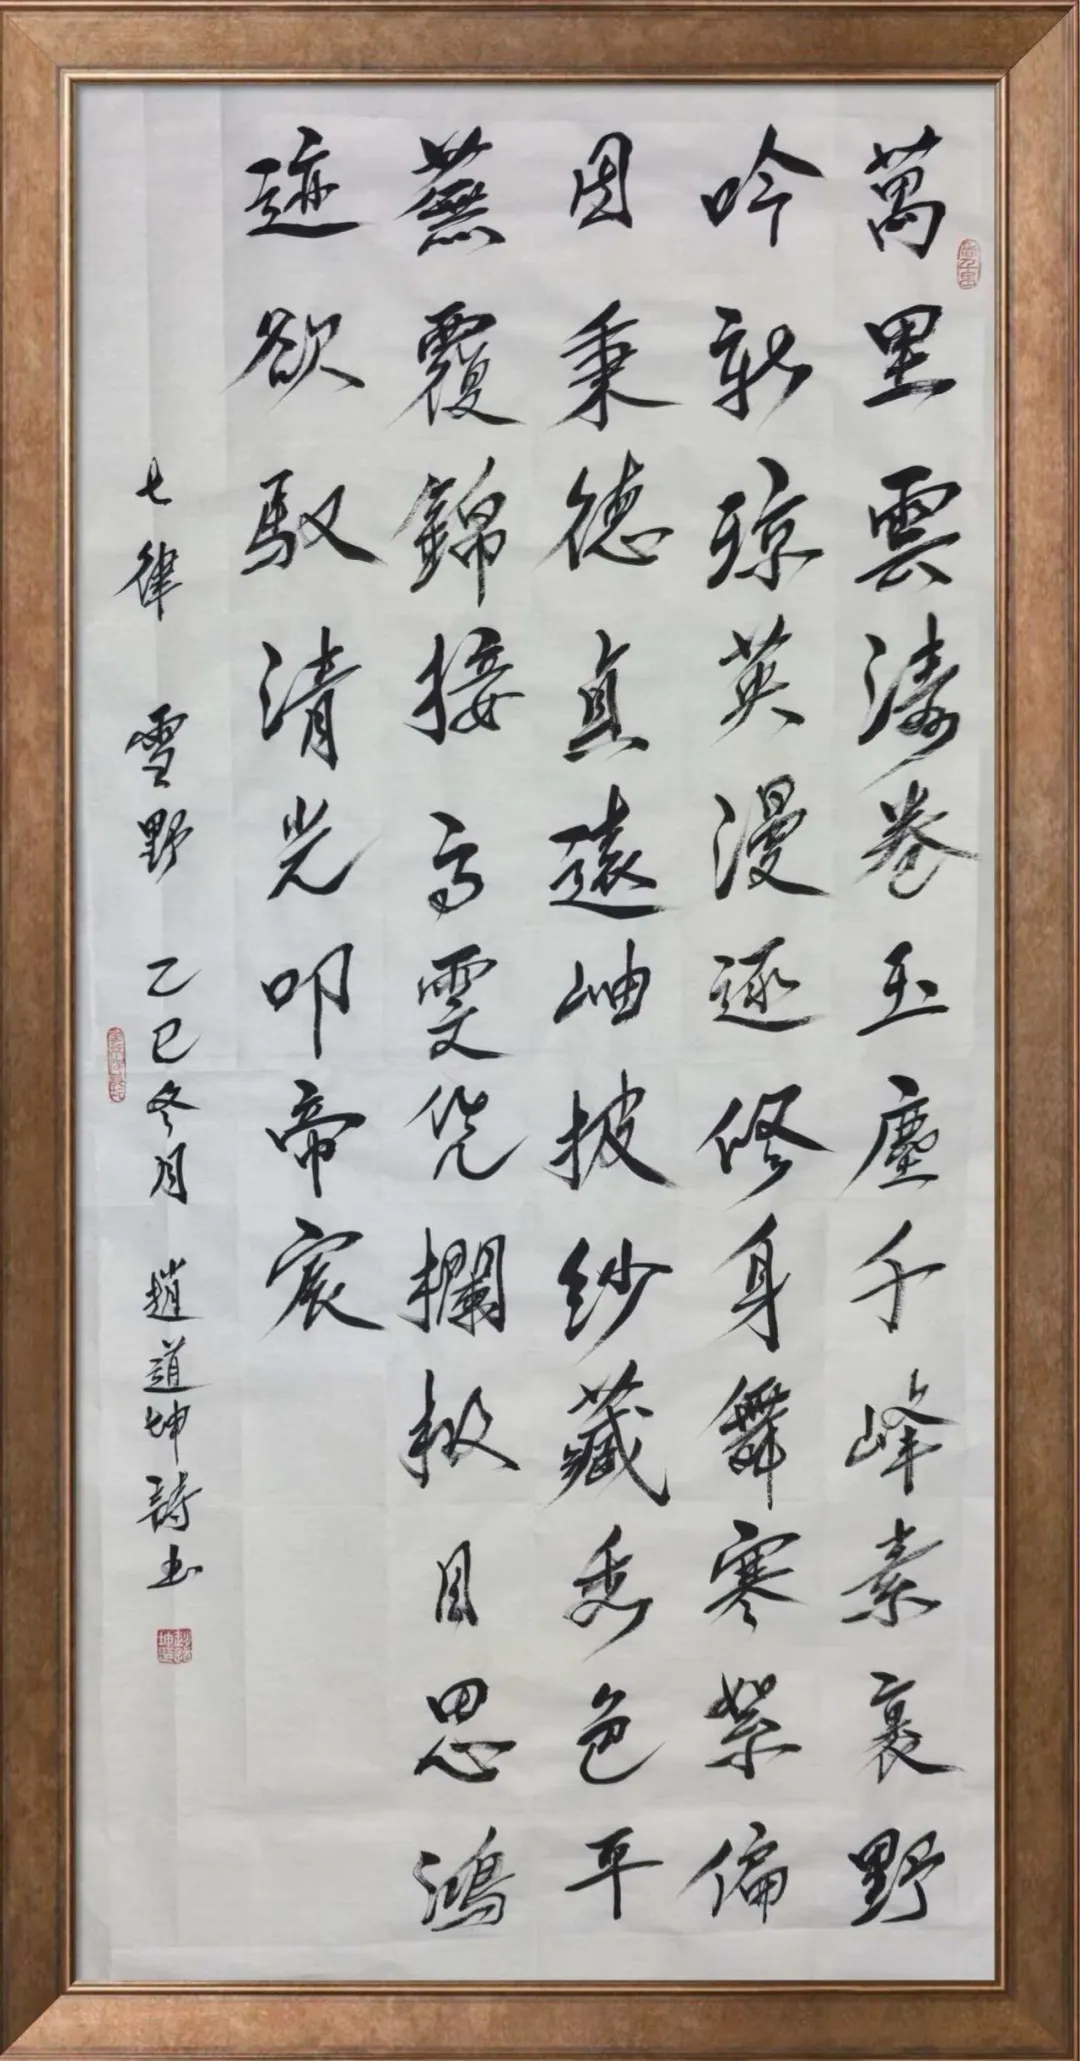 萬里雲濤卷玉塵千峰素裹野
吟新琼英漫逐修身舞寒絮偏
因秉德真遠岫披紗藏秀色平
蕪覆錦接高雯凭欄极目思鴻
迹欲馭清光叩帝宸
七律 雪野 乙巳冬月 趙道坤詩书